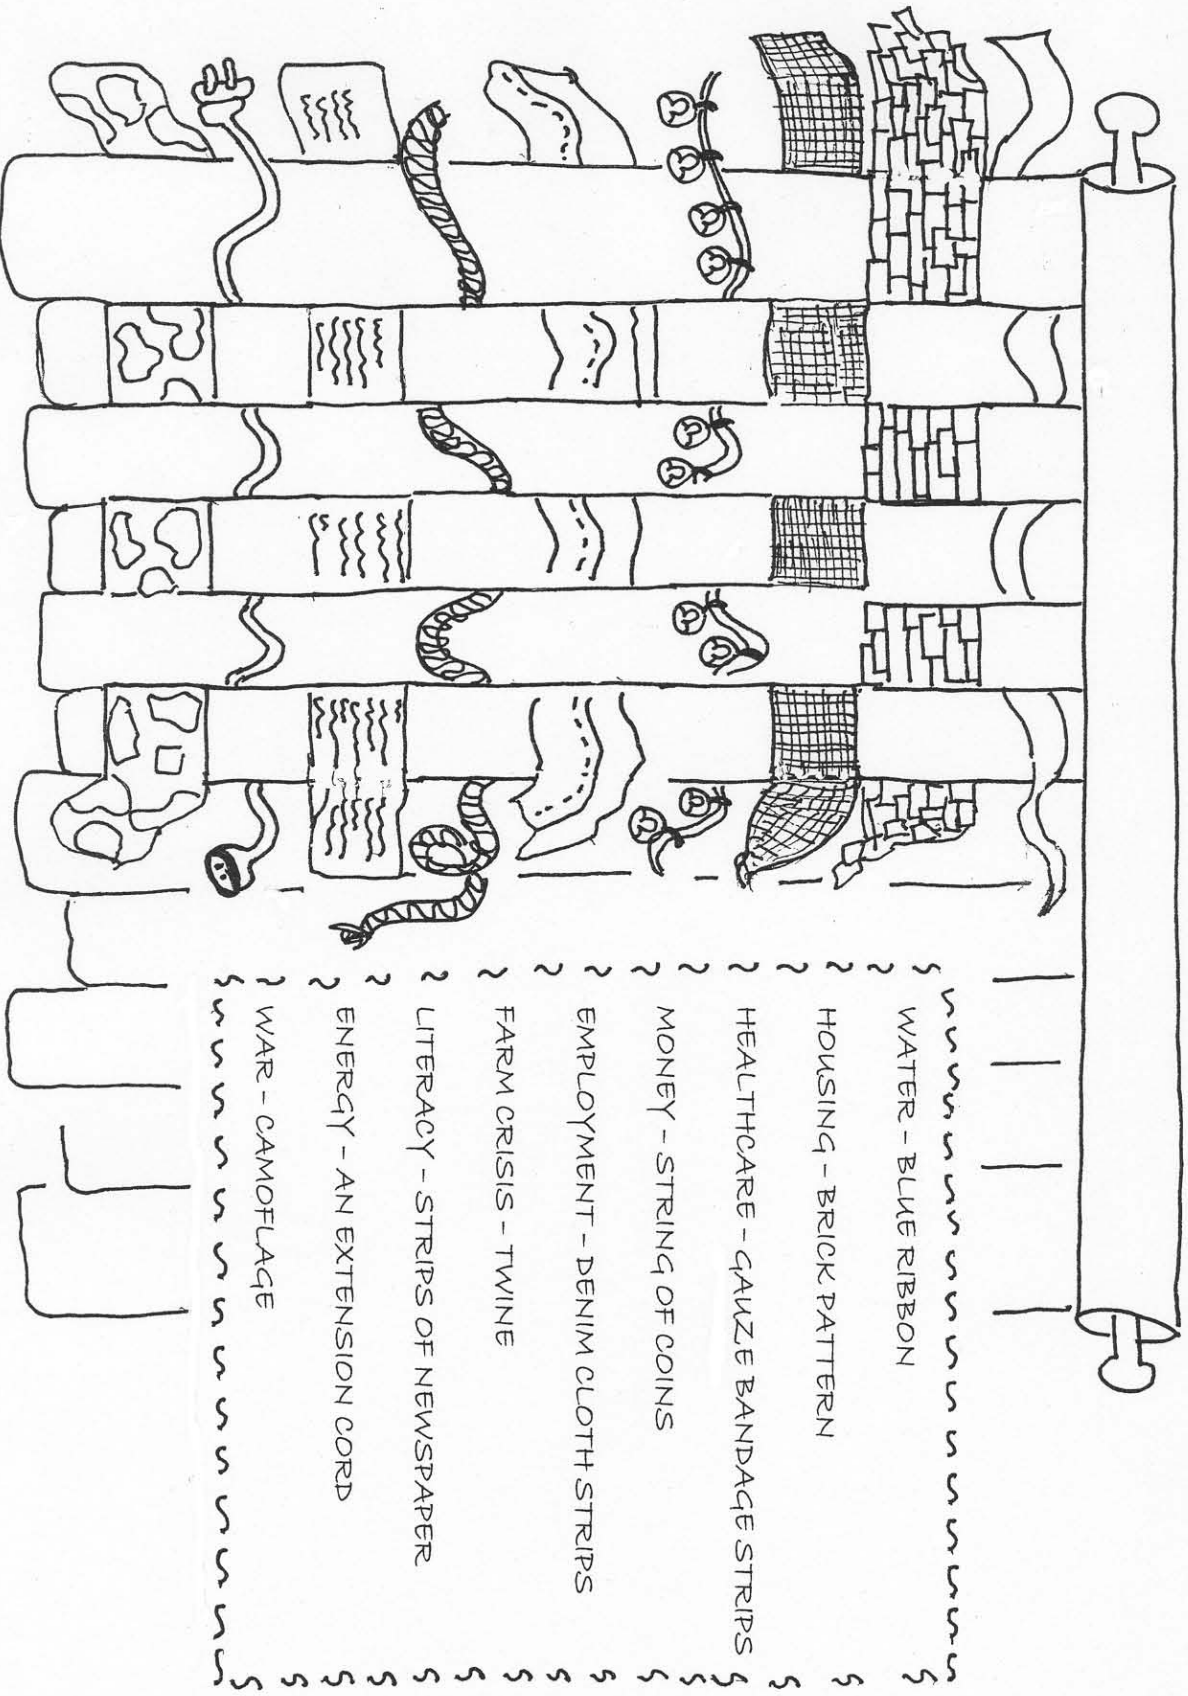 WATER - BLUE RIBBON
HOUSING - BRICK PATTERN
HEALTHCARE - GAUZE BANDAGE STRIPS
MONEY - STRING OF COINS
EMPLOYMENT - DENIM CLOTH STRIPS
FARM CRISIS - TWINE
LITERACY - STRIPS OF NEWSPAPER
ENERGY - AN EXTENSION CORD
WAR - CAMOFLAGE